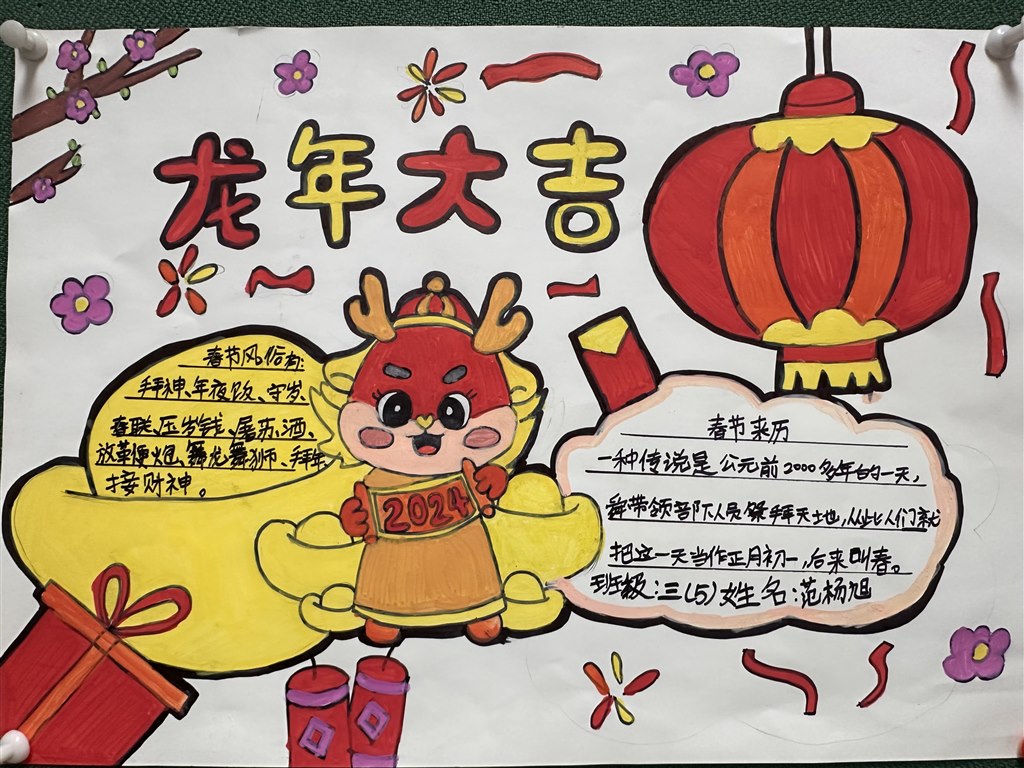 龙年大吉
春节风俗有:
拜神、年夜饭、守岁、
春联、压岁钱、屠苏酒、
放革便炮、舞龙舞狮、拜年
接财神。
2024
春节来历
一种传说是公元前2000多年的一天,
舜带领部下人员祭拜天土地,从此人们就
把这一天当作正月初一,后来叫春。
班级:三(5)姓名:范杨旭